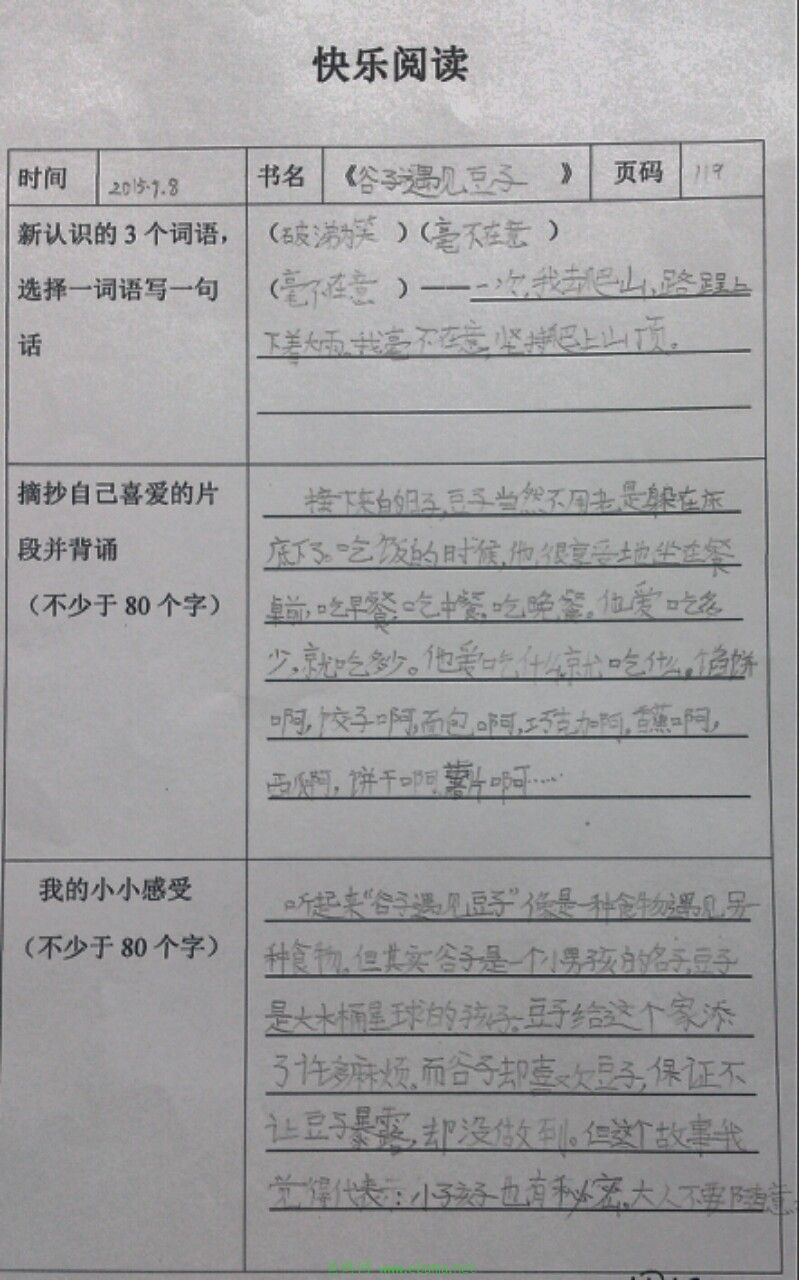 快乐阅读
时间 2015.7.8 书名 《谷子遇见豆子》 页码 119
新认识的3个词语，
选择一词语写一句
话
（破涕为笑）（毫不在意）
（毫不在意）——一次，我去爬山，路程上
下着大雨。我毫不在意，坚持爬上山顶。
摘抄自己喜爱的片
段并背诵
（不少于80个字）
接下来的日子，豆子当然不用老是躲在床
底下了。吃饭的时候，他很享受地坐在餐
桌前，吃早餐，吃中餐，吃晚餐。他爱吃多
少，就吃多少。他爱吃什么，就吃什么。馅饼
啊，饺子啊，面包啊，巧克力啊，香蕉啊，
西瓜啊，饼干啊，薯片啊……
我的小小感受
（不少于80个字）
听起来“谷子遇见豆子”像是一种食物遇见另一
种食物。但其实谷子是一个小男孩的名字，豆子
是大木桶星球的孩子。豆子给这个家添
了许多麻烦，而谷子却喜欢豆子，保证不
让豆子暴露，却没做到。但这个故事我
觉得代表：小孩子也有秘密，大人不要随意